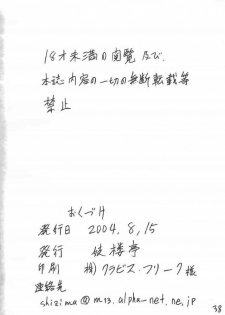 18才未満の閲覧及び、
本誌内容の一切の無断転載等
禁止
おくづけ
発行日 2004.8,15
発行 楼亭
印刷 ㈱クラビス・フリーク様
連絡先
shizima@m13.alpha-net.ne.jp
38